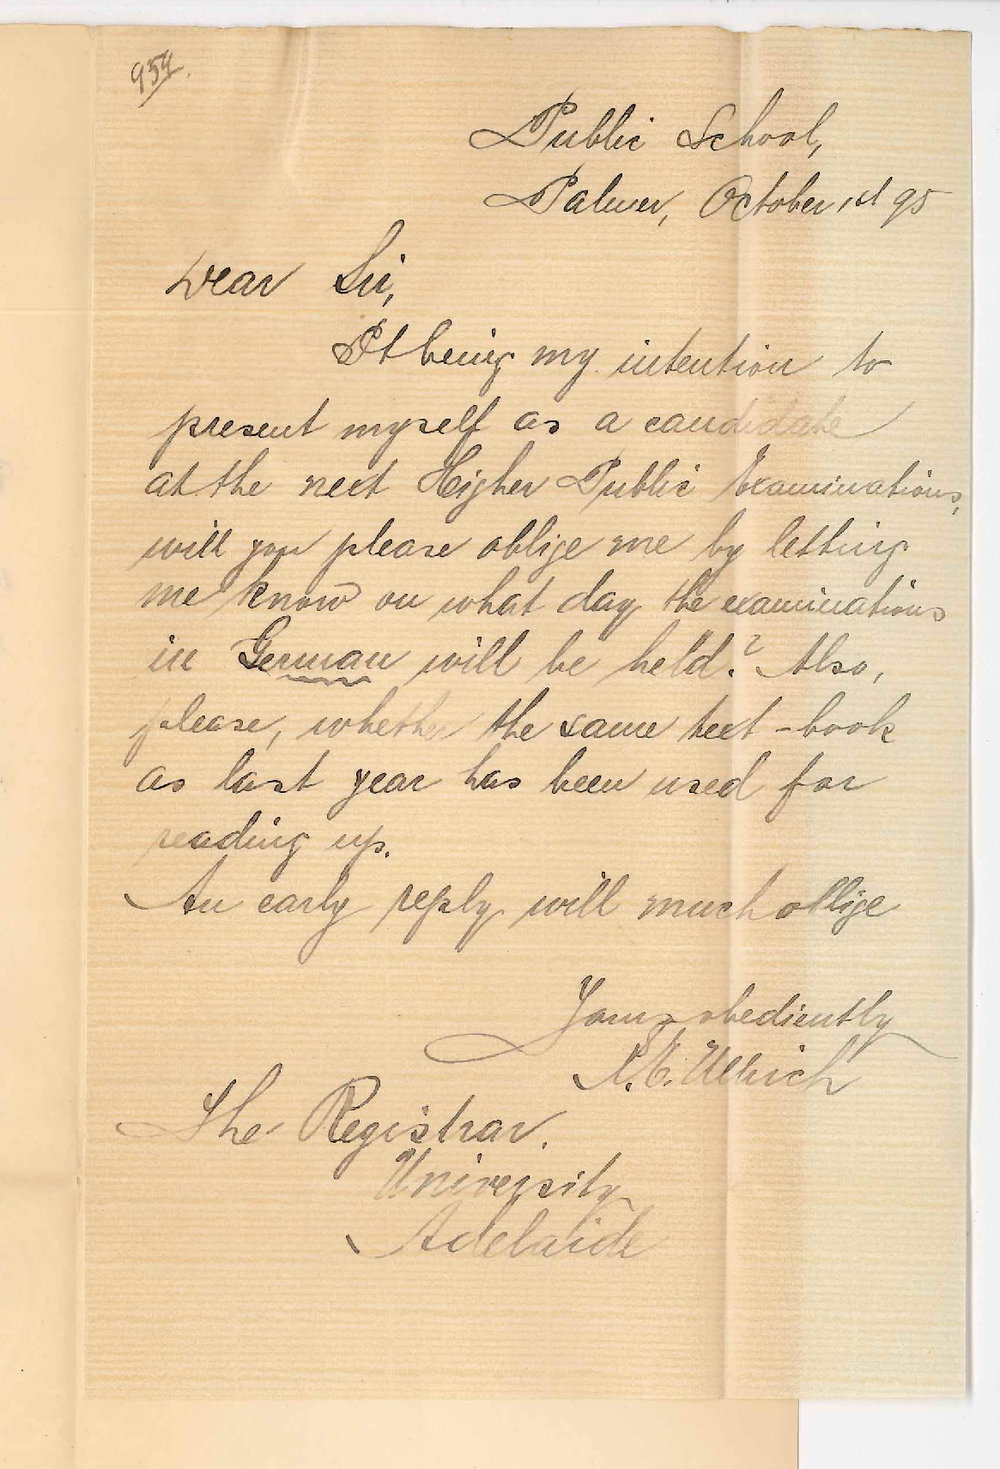 959.
Public School,
Palmer, October, 95
Dear Sir,
It being my intention to
present myself as a candidate
at the next Higher Public Examinations,
will you please oblige me by letting
me know on what day the examinations
in German will be held? Also,
please, whether the same text-book
as last year has been used for
reading up.
An early reply will much oblige
Yours obediently
Ullrich
The Registrar.
University
Adelaide